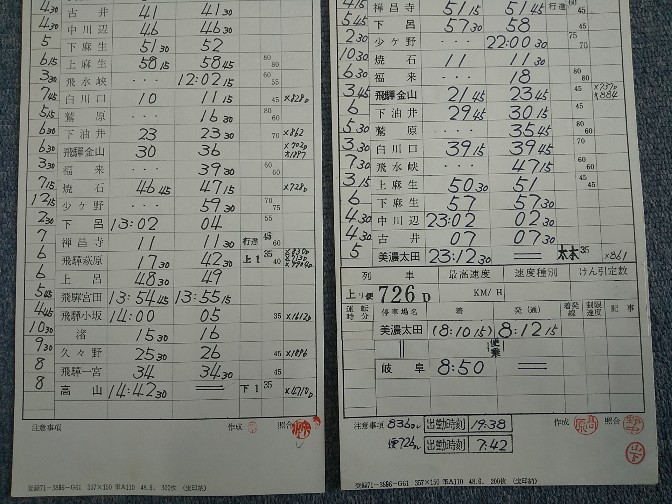 4 30 古井 41 41 30
4 30 中川辺 46 46 30
5 下麻生 51 30 52
6 15 上麻生 58 15 58 45 80 80
3 30 飛水峡 ・・・ 12:02 15 60 55
7 45 白川口 10 11 15 45 ×828D
5 15 鷲原 ・・・ 16 30 80 60
6 30 下油井 23 23 30 ×862
6 30 飛騨金山 30 36
3 30 福来 ・・・ 39 30 60 60
7 15 焼石 46 45 47 15 45 ×728D
12 15 少ケ野 ・・・ 59 30 70 75
2 30 下呂 13:02 04 55
7 禅昌寺 11 11 30 行違 45 60
6 飛騨萩原 17 30 42 30 上1 35 40
6 上呂 48 30 49
5 45 飛騨宮田 13:54 45 13:55 15
4 45 飛騨小坂 14:00 05 35 ×1612D
10 30 渚 15 30 16
9 30 久々野 25 30 26 35 ×1896
8 飛騨一宮 34 34 30
8 高山 14:42 30 ＝ 下1 35 ×4710D
注意事項 作成 照合
登録71-3896-G61 357×150 軍A110 48.6. 300枚 (宝印納)
4 15 禅昌寺 51 15 51 45 行違 60 45
5 45 下呂 57 30 58
2 30 少ケ野 ・・・ 22:00 30 75 70
10 30 焼石 11 11 30 45
6 30 福来 ・・・ 18 80 80
3 45 飛騨金山 21 45 23 45 45 ×737D ×884
6 下油井 29 45 30 15
5 30 鷲原 ・・・ 35 45 80 60
3 30 白川口 39 15 39 45 45
7 30 飛水峡 ・・・ 47 15 60
3 15 上麻生 50 30 51 45
6 下麻生 57 57 30
4 30 中川辺 23:02 02 30
4 30 古井 07 07 30
5 美濃太田 23:12 30 ＝ 本本 35 ×861
列車 最高速度 速度種別 けん引定数
上り便 726D KM/H
運転時分 停車場名 着 発(通) 着発線 制限速度 記事
美濃太田 (8:10 15) 8:12 15
便乗
岐阜 8:50 ＝
注意事項 836D 出勤時刻 19:38 作成 照合
便726D 出勤時刻 7:42 山下
登録71-3896-G61 357×150 軍A110 48.6. 200枚 (宝印納)